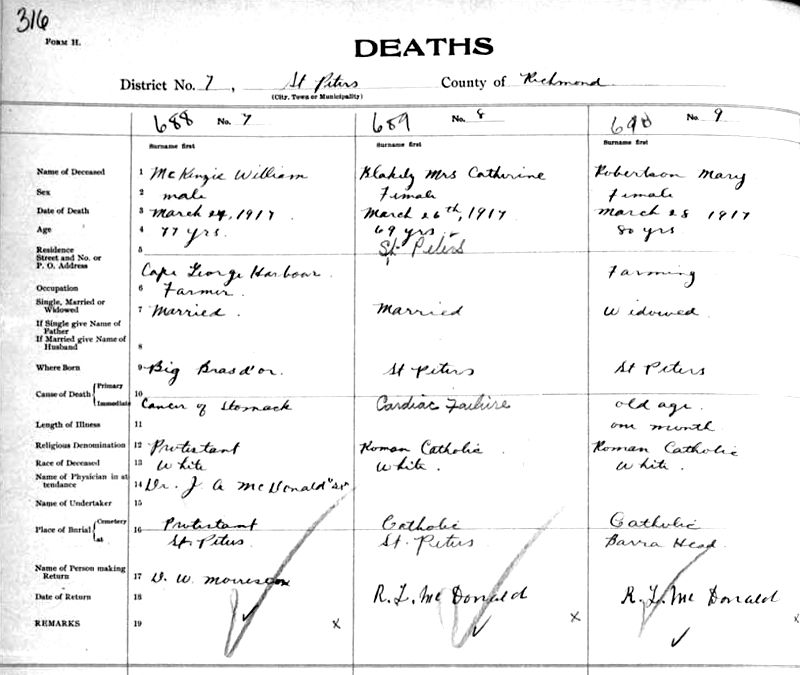 316
FORM H.
DEATHS
District No. 7, St Peters County of Richmond
(City, Town or Municipality)
688 No. 7 689 No. 8 690 No. 9
Surname first Surname first Surname first
Name of Deceased 1 McKenzie William Blakely Mrs Catherine Robertson Mary
Sex 2 male Female Female
Date of Death 3 March 24, 1917. March 26th, 1917 March 28 1917
Age 4 77 yrs. 69 yrs. 80 yrs
Residence 5 St. Peters
Street and No. or
P. O. Address Cape George Harbour. Farming
Occupation 6 Farmer.
Single, Married or
Widowed 7 Married. Married Widowed
If Single give Name of
Father
If Married give Name of
Husband 8
Where Born 9 Big Brasd'or. St Peters St Peters
Cause of Death Primary 10
Immediate Cancer of Stomack Cardiac Failure old age.
Length of Illness 11 one month
Religious Denomination 12 Protestant Roman Catholic Roman Catholic
Race of Deceased 13 White White. White.
Name of Physician in at
tendance 14 Dr. J A McDonald
Name of Undertaker 15
Place of Burial Cemetery 16 Protestant Catholic Catholic
at St. Peters St. Peters Barra Head
Name of Person making
Return 17 D. W. Morrison R. L. McDonald R. L. McDonald
Date of Return 18
REMARKS 19 x x x